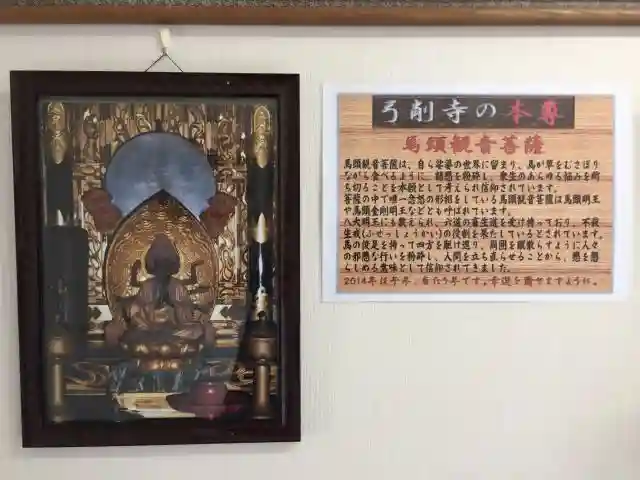 弓削寺の本尊
馬頭観音菩薩
馬頭観音菩薩は、自ら娑婆の世界に留まり、馬が草をむさぼり
ながら食べるように、諸悪を粉砕し、衆生のあらゆる悩みを断
ち切ることを本願として考えられ信仰されています。
菩薩の中で唯一忿怒の形相をしている馬頭観音菩薩は馬頭明王
や馬頭金剛明王などとも呼ばれています。
八大明王にも数えられ、六道の畜生道を受け持っており、不殺
生戒(ふせっしょうかい)の役割を果たしているとされています。
馬の俊足を持って四方を駆け巡り、周囲を蹴散らすように人々
の邪悪な行いを粉砕し、人間を立ち直らせることから、悪を懲
らしめる意味として信仰されてきました。
2014年は午年、着たう年です。幸運を齎せますように。